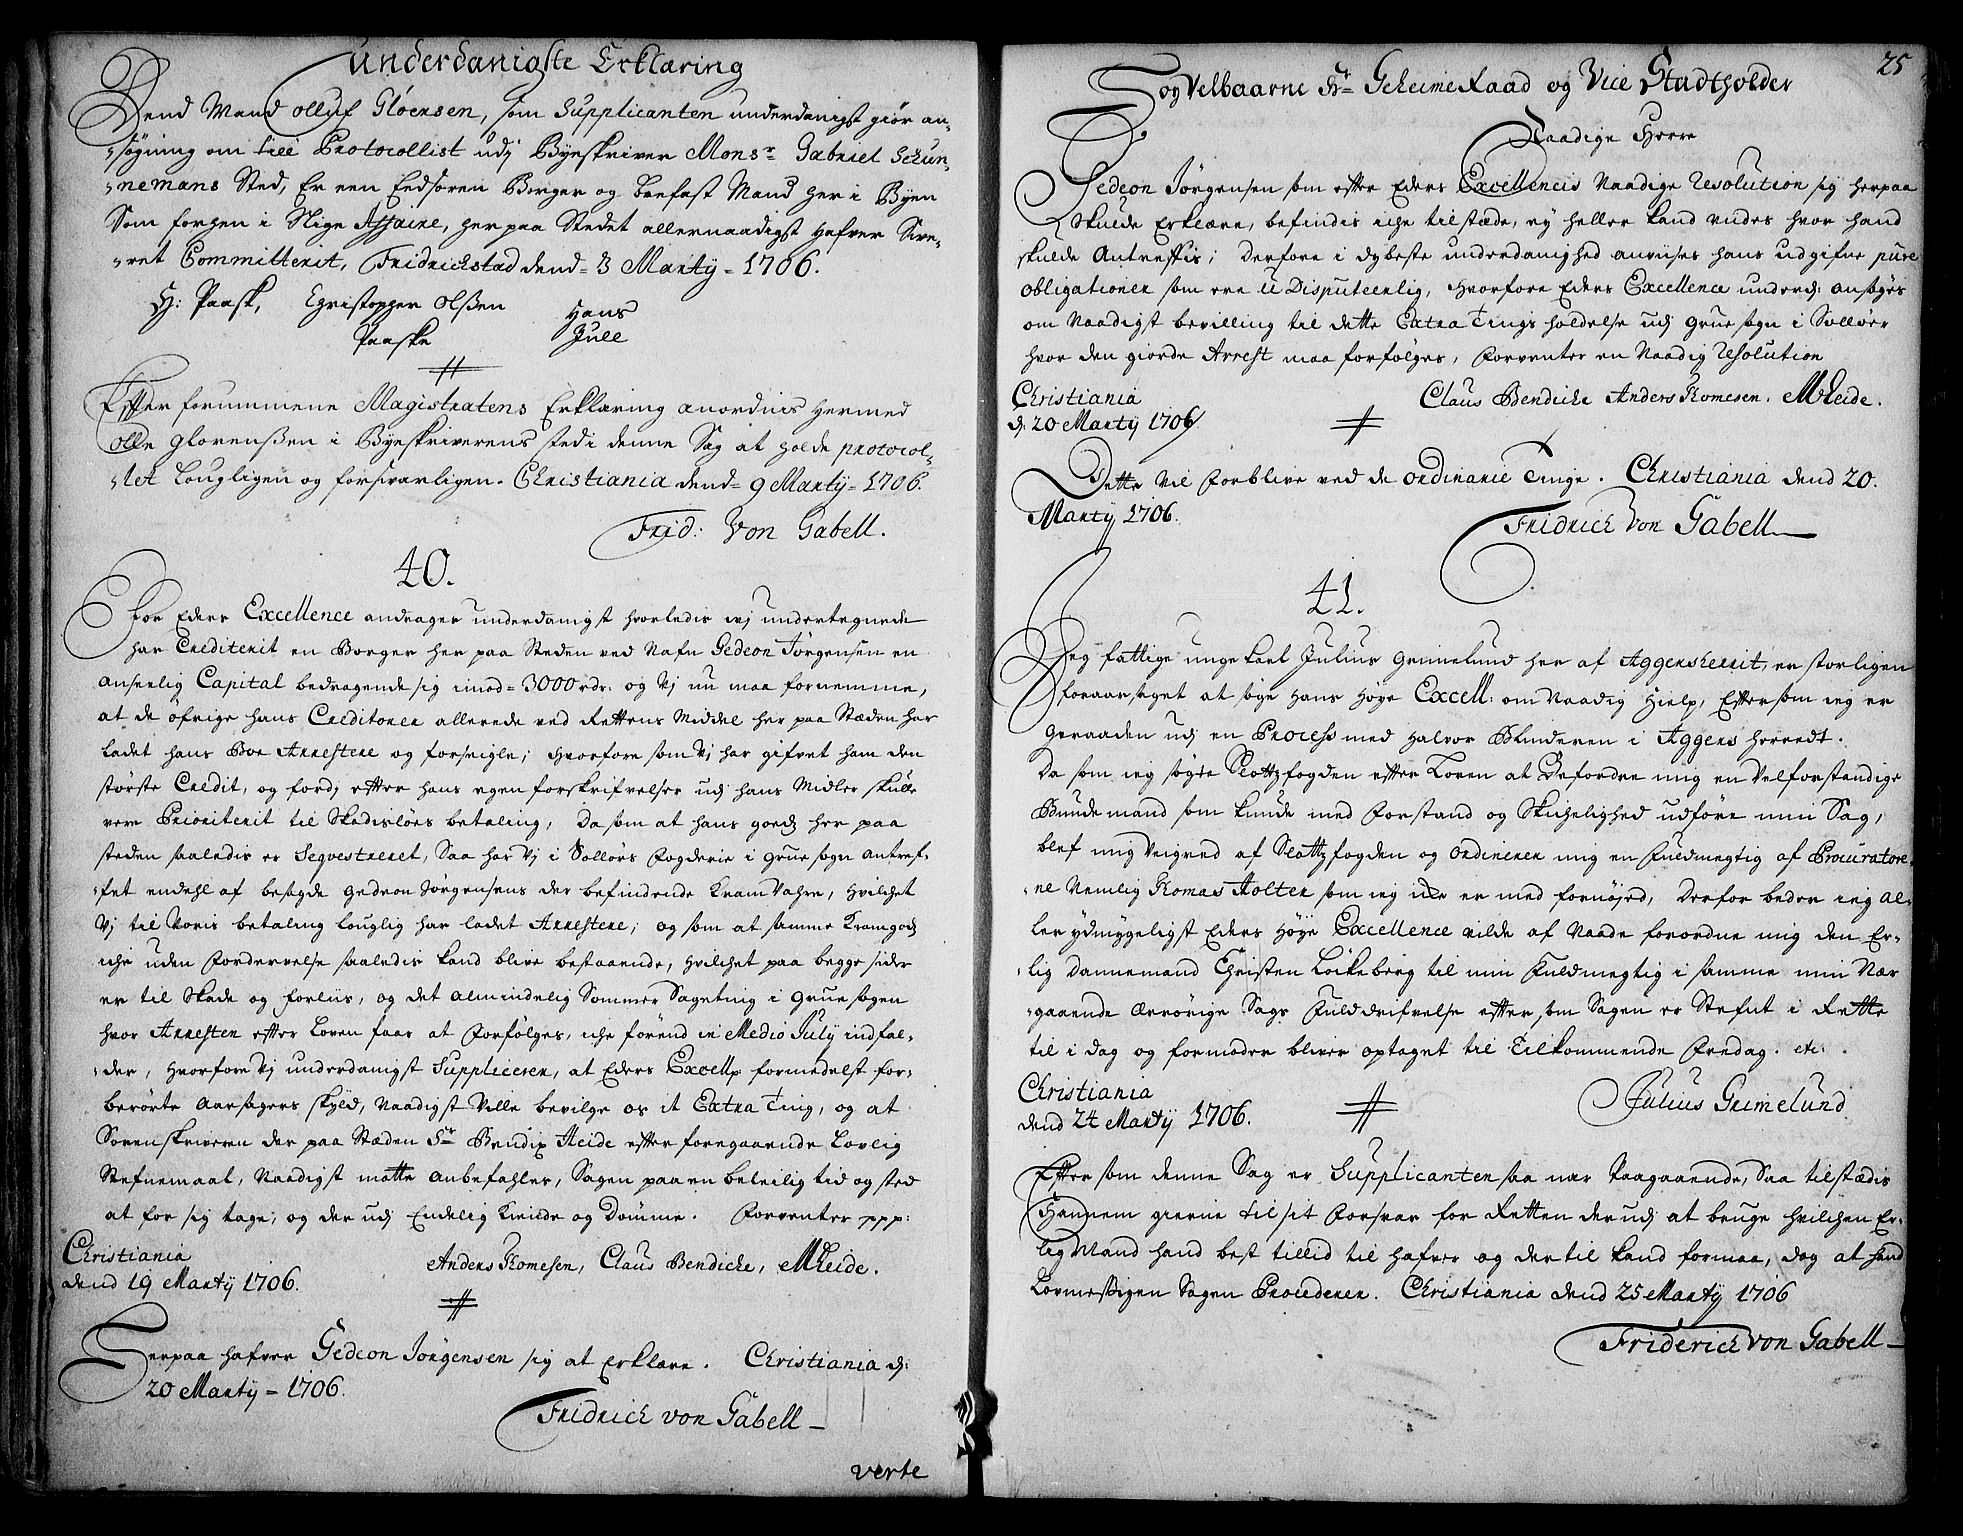 Underdanigste Erklæring
Dend Mand Olluf Gløersen, som Supplicanten underdanigst giør an-
søgning om till Protocollist udj Byeskriver Monsr Gabriel Schun-
nemans Sted, Er een Eedsoren Borger og boefast Mand her i Byen
Som forhen i Slige Affaire, her paa Stedet allernaadigst hafver Være-
ret Committerit, Fridrichstad dend= 3 Martÿ = 1706.
H: Paask, Christopher Olßen Hans
Paaske Juell
Efter forommene Magistratens Erklæring anordnis hermed
Olle Glorenßen i Byeskriverens sted i denne Sag at holde protocol-
let Lougligen og forsvarligen. Christiania dend= 9 Martÿ = 1706.
Frid: Von Gabell.
40.
For Eders Excellence andrager underdanigst hvorledis wj undertegnede
har Crediterit en Borger her paa Steden ved Nafn Gedeon Jørgensen en
anseelig Capital bedragende sig imod= 3000 rdr: og Vj nu maa fornemme,
at de øfrige hans Creditorer allerede ved Rettens Middel her paa Stæden har
ladet hans Boe Arrestere og forseigle; hvorfore som Vj har gifvet ham den
største Credit, og fordj efter hans egen forskrifvelser udj hans Midler skulle
vere Prioriterit til Skadisløs betaling, Da som at hans goedz her paa
steden saaledis er Seqvestreret, Saa har Vj i Solløers Fogderie i Grue sogn antref-
fet endehl af besagde Gedeon Jørgensens der befindende KramVahre, hvilchet
Vj til Voris betaling louglig har ladet Arrestere; og som at samme Kramgods
iche uden Fordervelse saaledis kand blive bestaaende, hvilchet paa begge sider
er til Skade og forliis, og det almindelig Sommer Sageting i Grue sogen
hvor Arresten efter Loven faar at Forfølges, iche førend in Medio July indfal-
der, hvorfore Vj underdanigst Suppliceren, at Eders Excellp formedelst for-
berørte aarsagers skyld, Naadigst Ville bevilge os it Extra Ting, og at
Sorenskriveren der paa Stæden Sr Bendix Heide efter foregaaende Lovlig
Stefnemaal, Naadigst motte anbefahles, Sagen paa en beleilig tid og sted
at for sig tage; og der udj Endelig Kiende og Domme. Forventer ppp:
Christiania
dend 19 Martÿ 1706. Anders Thomesen, Claus Bendiche, MHeide.
Herpaa hafver Gedeon Jørgensen sig at Erklære. Christiania d:
20 Martÿ = 1706.
Fridrich von Gabell
verte
25
Høy Velbaarne Hr Geheime Raad og Vice Stadtholder
Naadige Herre
Gedeon Jørgensen som efter Eders Excellencis Naadige Resolution sig herpaa
skulde Erklære, befindis iche tilstæde, ey heller kand vides hvor hand
skulde Antreffis; derfore i dybeste underdanighed anviises hans udgifne pure
obligationer som ere uDisputeerlig, hvorfore Eders Excellence underd: ansøges
om Naadigst bevilling til dette Extra Tings holdelse udj Grue sogn i Solløer
hvor den giorde Arrest maa forfølges, Forventer en Naadig Resolution
Christiania Claus Bendiche Anders Thomesen. MHeide.
d: 20 Martÿ 1706
Dette vil Forblive ved de ordinarie Tinge. Christiania dend 20.
Martÿ 1706.
Fridrich von Gabell
41.
Jeg fattige unge karl Julius Grimelund her af Aggersherrit, er storligen
foraarsaget at søge Hans Høye Excell: om Naadig Hielp, Eftersom ieg er
geraaden udj en Process med Halvor Blinderen i Aggers herredt.
Da som ieg søgte Slottzfogden efter Loven at Befordre mig en Velforstandige
Bundemand som kunde med Forstand og Skichelighed udføre min Sag,
blef mig Veigred af Slottzfogden og ordinerer mig en Fuldmegtig af Procuratore-
ne Nemlig Thomas Holter som ieg icke er med fornøyed, Derfor beder ieg al-
lerydmygeligst Eders Høye Excellence vilde af Naade forordne mig den Er-
lig Dannemand Christen Lockeberg til min Fuldmegtig i samme min Nær
gaaende Ærrørige Sags Fulddrifvelse efter som Sagen er Stefnt i Rette
til i dag og formoder bliver optaget til Tilkommende Fredag. etc:
Christiania
dend 24 Martÿ 1706. Julius Grimelund
Efter som denne Sag er Supplicanten saa nær Paagaaende, Saa tilstædis
Hannem gierne til sit Forsvar for Retten der udj at bruge hvilchen Er-
lig Mand hand best tillid til hafver og dertil kand formaa, dog at hand
Lovmeßigen Sagen Procederer. Christiania dend 25 Martÿ 1706
Friderich von Gabell